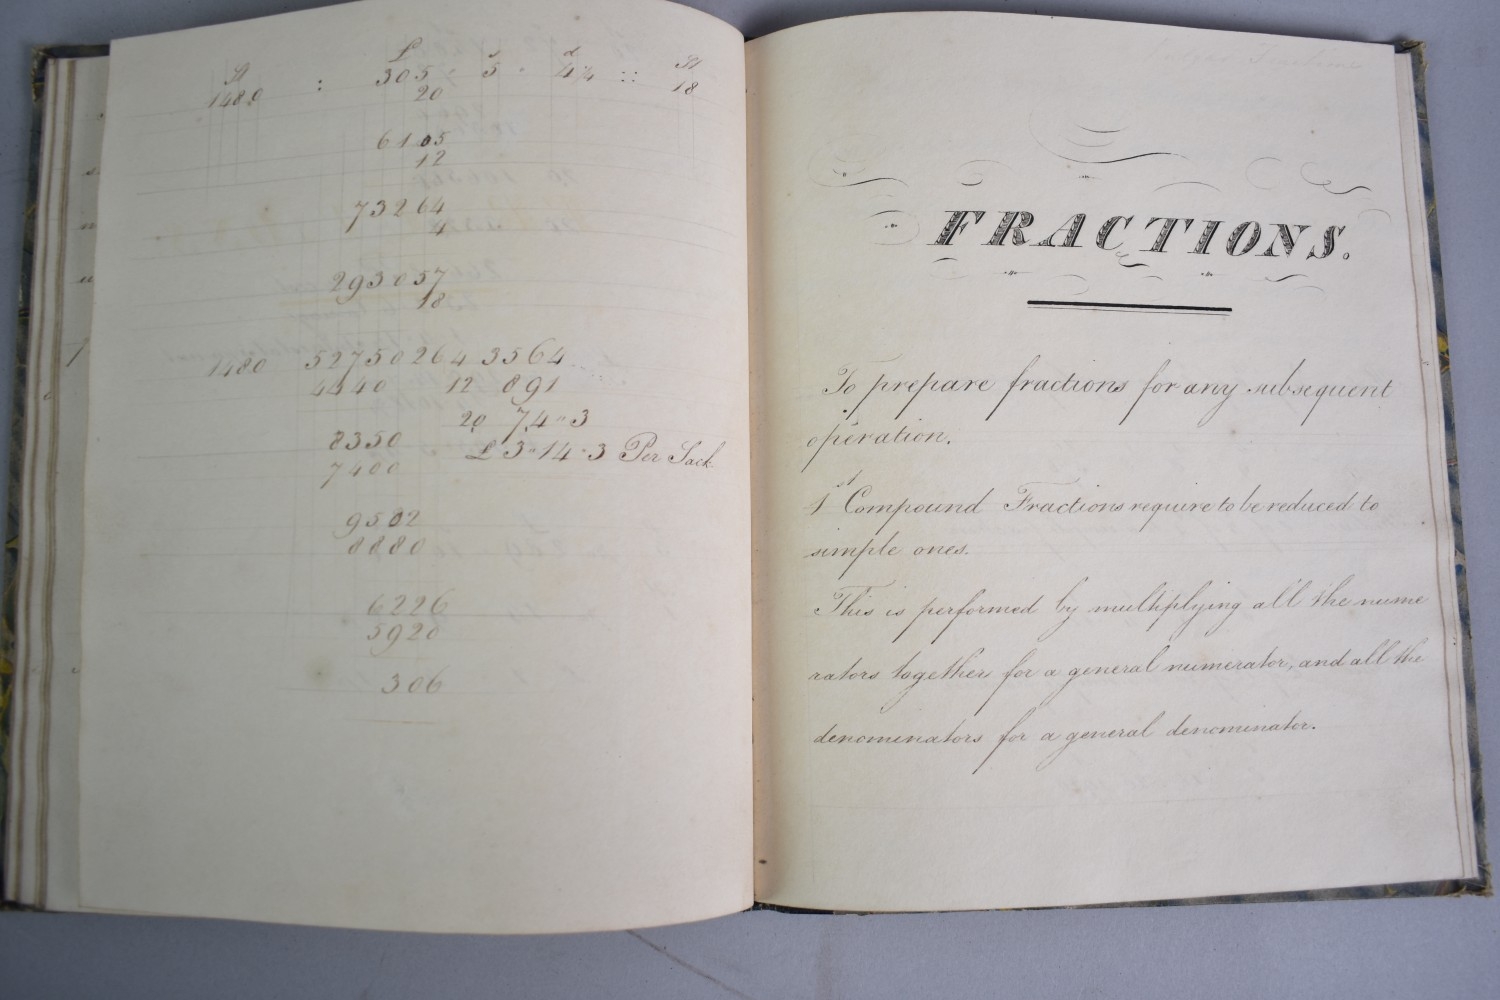 St £ s d St
1480 : 305 " 5 " 4¼ :: 18
20
6105
12
73264
4
293057
18
1480 5275026 4 3564
4440 12 891
20 74 " 3
8350
£ 3 " 14 " 3 Per Sack
7400
9502
8880
6226
5920
306
FRACTIONS.
To prepare fractions for any subsequent
operation.
1st Compound Fractions require to be reduced to
simple ones.
This is performed by multiplying all the nume
rators together for a general numerator, and all the
denominators for a general denominator.